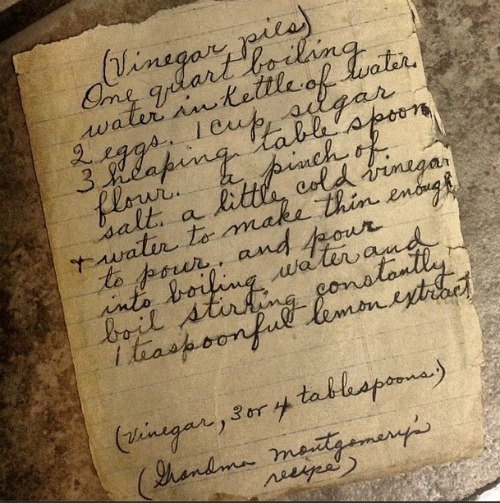 (Vinegar pies)
One quart boiling
water in kettle of water.
2 eggs. 1 cup, sugar
3 heaping table spoon
flour. a pinch of
salt. a little cold vinegar
+ water to make thin enough
to pour. and pour
into boiling water and
boil stirring constantly
1 teaspoonful lemon extract
(Vinegar, 3 or 4 tablespoons.)
(Grandma Montgomery's
recipe)